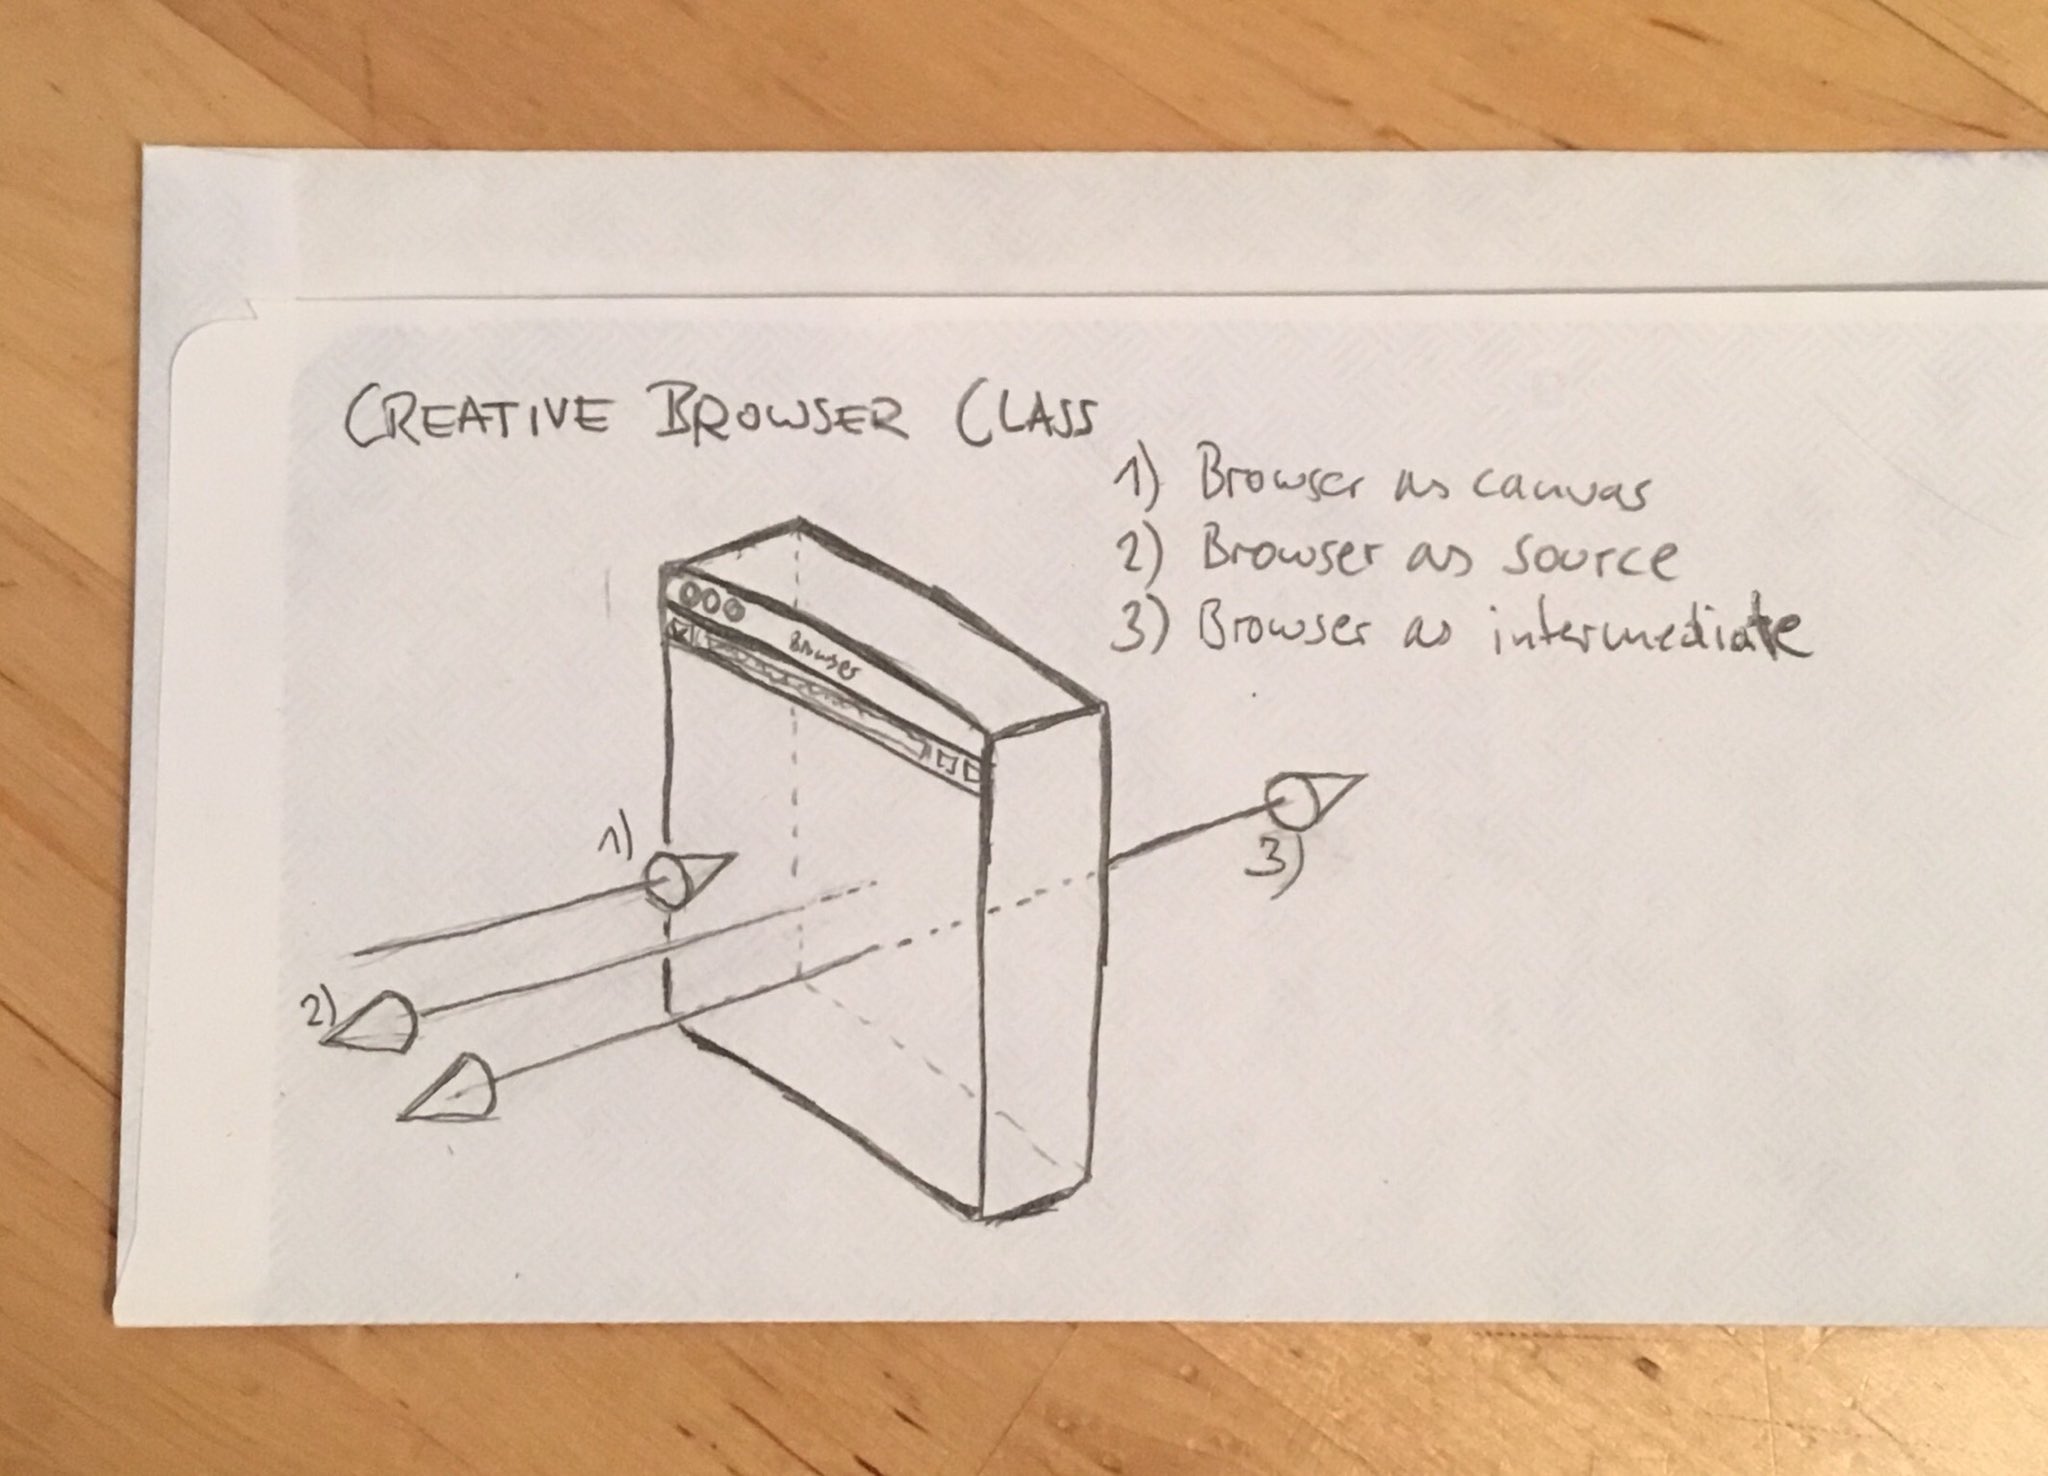 CREATIVE BROWSER CLASS
1) Browser as canvas
2) Browser as source
3) Browser as intermediate
Browser
1)
3)
2)